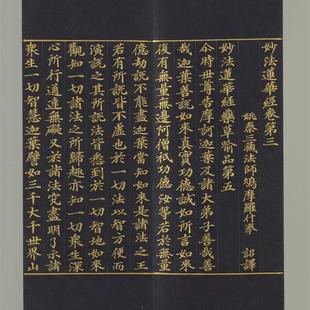 妙法蓮華経巻第三
姚秦三蔵法師鳩摩羅什奉　詔譯
妙法蓮華經藥草喻品第五
尒時世尊告摩訶迦葉及諸大弟子善哉善
哉迦葉善說如来真實功德誠如所言如来
復有無量無邊阿僧祇功德汝等若於無量
億劫說不能盡迦葉當知如来是諸法之王
若有所說皆不虛也於一切法以智方便而
演說之其所說法皆悉到於一切智地如来
觀知一切諸法之所歸趣亦知一切衆生深
心所行通達無礙又於諸法究盡明了示諸
衆生一切智慧迦葉譬如三千大千世界山